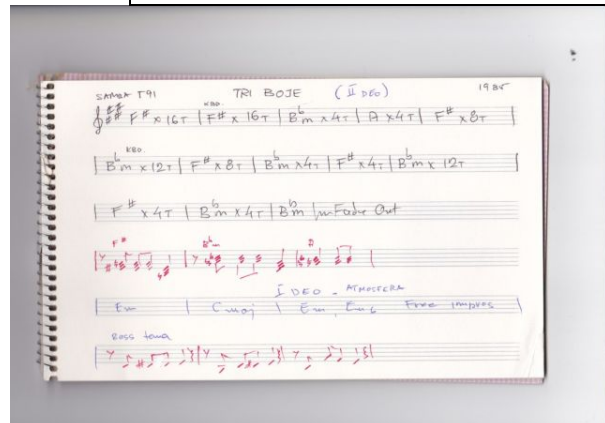 SAMBA T91 TRI BOJE (II DEO) 1985
KBD.
F# x 16T | F# x 16T | Bbm x 4T | A x 4T | F# x 8T |
KBD.
| Bbm x 12T | F# x 8T | Bbm x 4T | F# x 4T | Bbm x 12T |
| F# x 4T | Bbm x 4T | Bbm | Fade Out
F# Bbm A
I DEO - ATMOSFERA
| Em | Cmaj | Em, Em6 Free Improv |
Bass tema